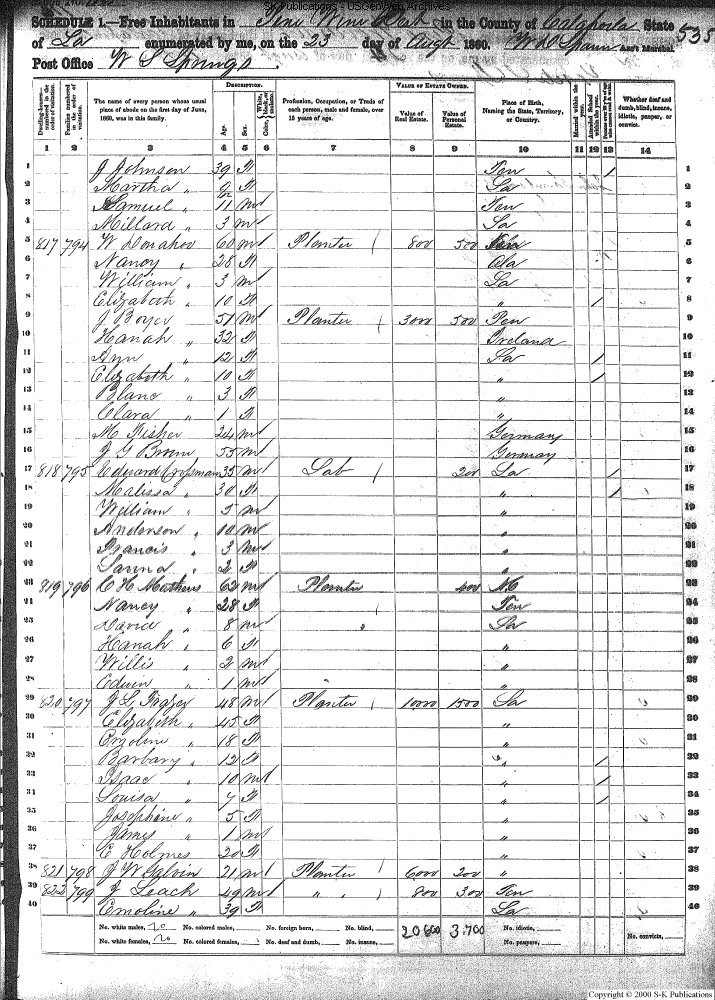 SK Publications - USGenWeb Archives
SCHEDULE 1.—Free Inhabitants in in the County of Catahoula State 535
of La enumerated by me, on the 23 day of Augt 1860. Ass't Marshal.
Post Office W S Springs
Dwelling-houses—numbered in the order of visitation. Families numbered in the order of visitation. The name of every person whose usual place of abode on the first day of June, 1860, was in this family. DESCRIPTION. Age. Sex. Color, White, black, or mulatto. Profession, Occupation, or Trade of each person, male and female, over 15 years of age. VALUE OF ESTATE OWNED. Value of Real Estate. Value of Personal Estate. Place of Birth, Naming the State, Territory, or Country. Married within the year. Attended School within the year. Whether deaf and dumb, blind, insane, idiotic, pauper, or convict.
1 2 3 4 5 6 7 8 9 10 11 12 13 14
1 J Johnson 39 f Ten / 1
2 Martha " f La 2
3 Samuel " 11 m Ten 3
4 Millard " 3 m La 4
5 817 794 W Donahoo 60 m Planter 1 800 500 5
6 Nancy " 28 f Ala 6
7 William " 3 m La 7
8 Elizabeth " 10 f " / 8
9 J Boyer 51 m Planter 1 3000 500 Pen 9
10 Hanah " 32 f Ireland 10
11 Ann " 12 f La / 11
12 Elizabeth " 10 f " / 12
13 Blanc " 3 f " 13
14 Clara " 1 f " 14
15 M Fisher 24 m Germany 15
16 J G Brown 55 m Germany 16
17 818 795 Edward 35 m Lab 1 200 La / 17
18 Malissa " 30 f " / 18
19 William " 5 m " 19
20 Anderson " 10 m " 20
21 Francis " 3 m " 21
22 " 2 f " 22
23 819 796 C H Mathews 62 m Planter 400 NC 23
24 Nancy " 28 f Ten 24
25 David " 8 m La 25
26 Hanah " 6 f " 26
27 Willis " 2 m " 27
28 Edwin " 1 m " 28
29 820 797 J L 48 m Planter 1 10000 1500 La 29
30 Elizabeth " 45 f " 30
31 Emoline " 18 f " 31
32 Barbary " 12 f " / 32
33 Isaac " 10 m " / 33
34 Louisa " 7 f " / 34
35 Josephine " 5 f " 35
36 James " 1 m " 36
37 E Holmes 20 f " 37
38 821 798 J W Galvin 21 m Planter 1 6000 200 " 38
39 822 799 J Leach 49 m " 1 800 300 Ten 39
40 Emoline " 39 f La 40
No. white males, 20 No. colored males, No. foreign born, No. blind, 20600 3700 No. idiotic,
No. white females, 20 No. colored females, No. deaf and dumb, No. insane, No. paupers, No. convicts,
Copyright © 2000 S-K Publications